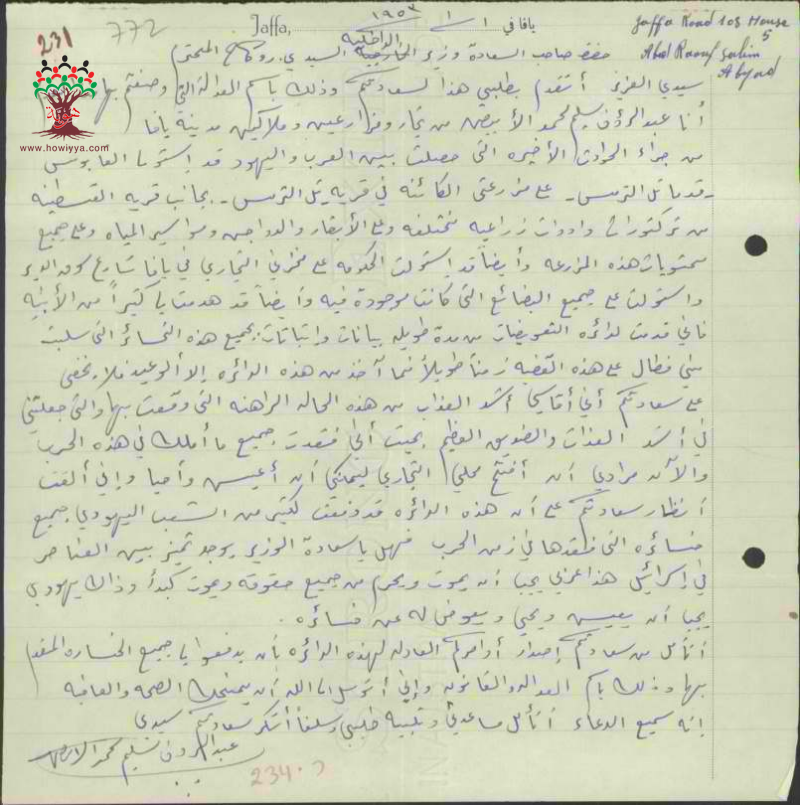 231
772
Jaffa,
يافا في ١ / ١ / ١٩٥٣
Jaffa Road 103 House
5
Abd Raouf Salim
Abyad
هوية
www.howiyya.com
الداخلية
حضرة صاحب السعادة وزير الخارجية السيد المحترم
سيدي العزيز أتقدم بطلبي هذا لسعادتكم وذلك باسم العدالة التي وصفتم بها
أنا عبدالرؤوف سليم محمد الأبيض من تجار ومزارعين وملاكين مدينة يافا
من جراء الحوادث الأخيره التي حصلت بين العرب واليهود قد استولى
تل الترمس - على مزرعتي الكائنه في قرية تل الترمس - بجانب قرية القسطينه
من تركتورات وادوات زراعيه مختلفه وعلى الأبقار والدواجن ومواسير المياه وعلى جميع
محتويات هذه المزرعه وأيضاً قد استولت الحكومه على مخزني التجاري في يافا شارع
واستولت على جميع البضائع التي كانت موجودة فيه وأيضاً قد هدمت لي كثيراً من الأبنيه
فاني قدمت لدائره التعويضات من مدة طويله بيانات واثباتات بجميع هذه الخسائر التي سلبت
مني فطال على هذه القضيه زمناً طويلاً فما آخذ من هذه الدائره إلا الوعيد فلا يخفى
على سعادتكم أني أقاسي أشد العذاب من هذه الحاله الراهنه التي وقعت بها والتي جعلتني
في أشد العذاب والضيق العظيم بحيث أني فقدت جميع ما أملك في هذه الحرب
والآن مرادي أن أفتح محلي التجاري ليمكنني أن أعيش وأحيا وإني ألفت
أنظار سعادتكم على أن هذه الدائره قد دفعت لكثير من الشعب اليهودي جميع
خسائره التي فقدها في زمن الحرب فهل يا سعادة الوزير يوجد تميز بين العناصر
في إسرائيل هذا عربي يجب أن يموت ويحرم من جميع حقوقه ويموت كبداً وذاك يهودي
يجب أن يعيش ويحيى ويعوض له عن خسائره .
أتأمل من سعادتكم إصدار أوامركم العادله لهذه الدائره بأن يدفعوا لي جميع الخساره المقدم
بها وذلك باسم العداله والقانون وإني أتوسل الى الله أن يمنحك الصحه والعافيه
إنه سميع الدعاء أتأمل مساعدتي وتلبية طلبي وسلفاً أشكر سعادتكم سيدي
عبدالرؤوف سليم محمد الابيض
234